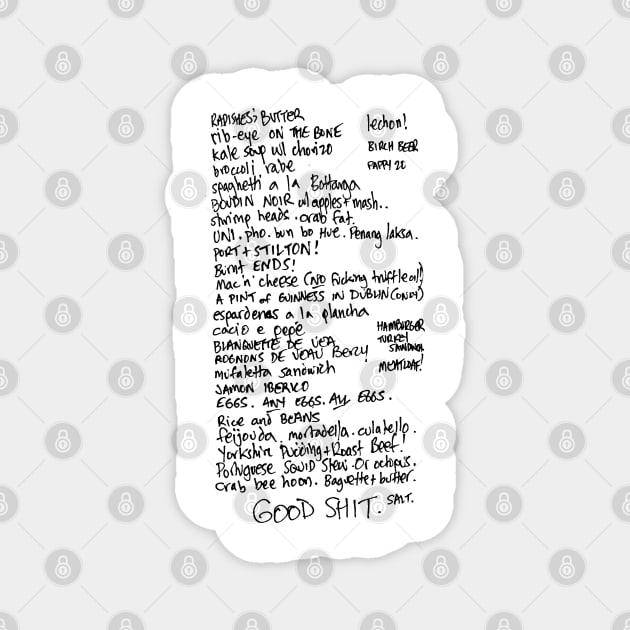 RADISHES; BUTTER
rib-eye ON THE BONE
lechon!
kale soup w/ chorizo
BIRCH BEER
broccoli rabe
PAPPY 20
spaghetti a la Bottarga
BOUDIN NOIR w/ apples + mash..
shrimp heads. crab fat.
UNI. pho. bun bo Hue. Penang laksa.
PORT + STILTON!
Burnt ENDS!
Mac'n'cheese (NO fucking truffle oil!)
A PINT of GUINNESS IN DUBLIN (ONLY)
espardenas a la plancha
cacio e pepe
HAMBURGER
BLANQUETTE DE VEA
TURKEY
SANDWICH
ROGNONS DE VEAU Bercy
mufaletta sandwich
MEATLOAF!
JAMON IBERICO
EGGS. ANY EGGS. ALL EGGS.
Rice and BEANS
feijouda. mortadella. culatello.
Yorkshire Pudding + Roast Beef!
Portuguese SQUID Stew. Or octopus.
Crab bee hoon. Baguette + butter.
SALT.
GOOD SHIT.